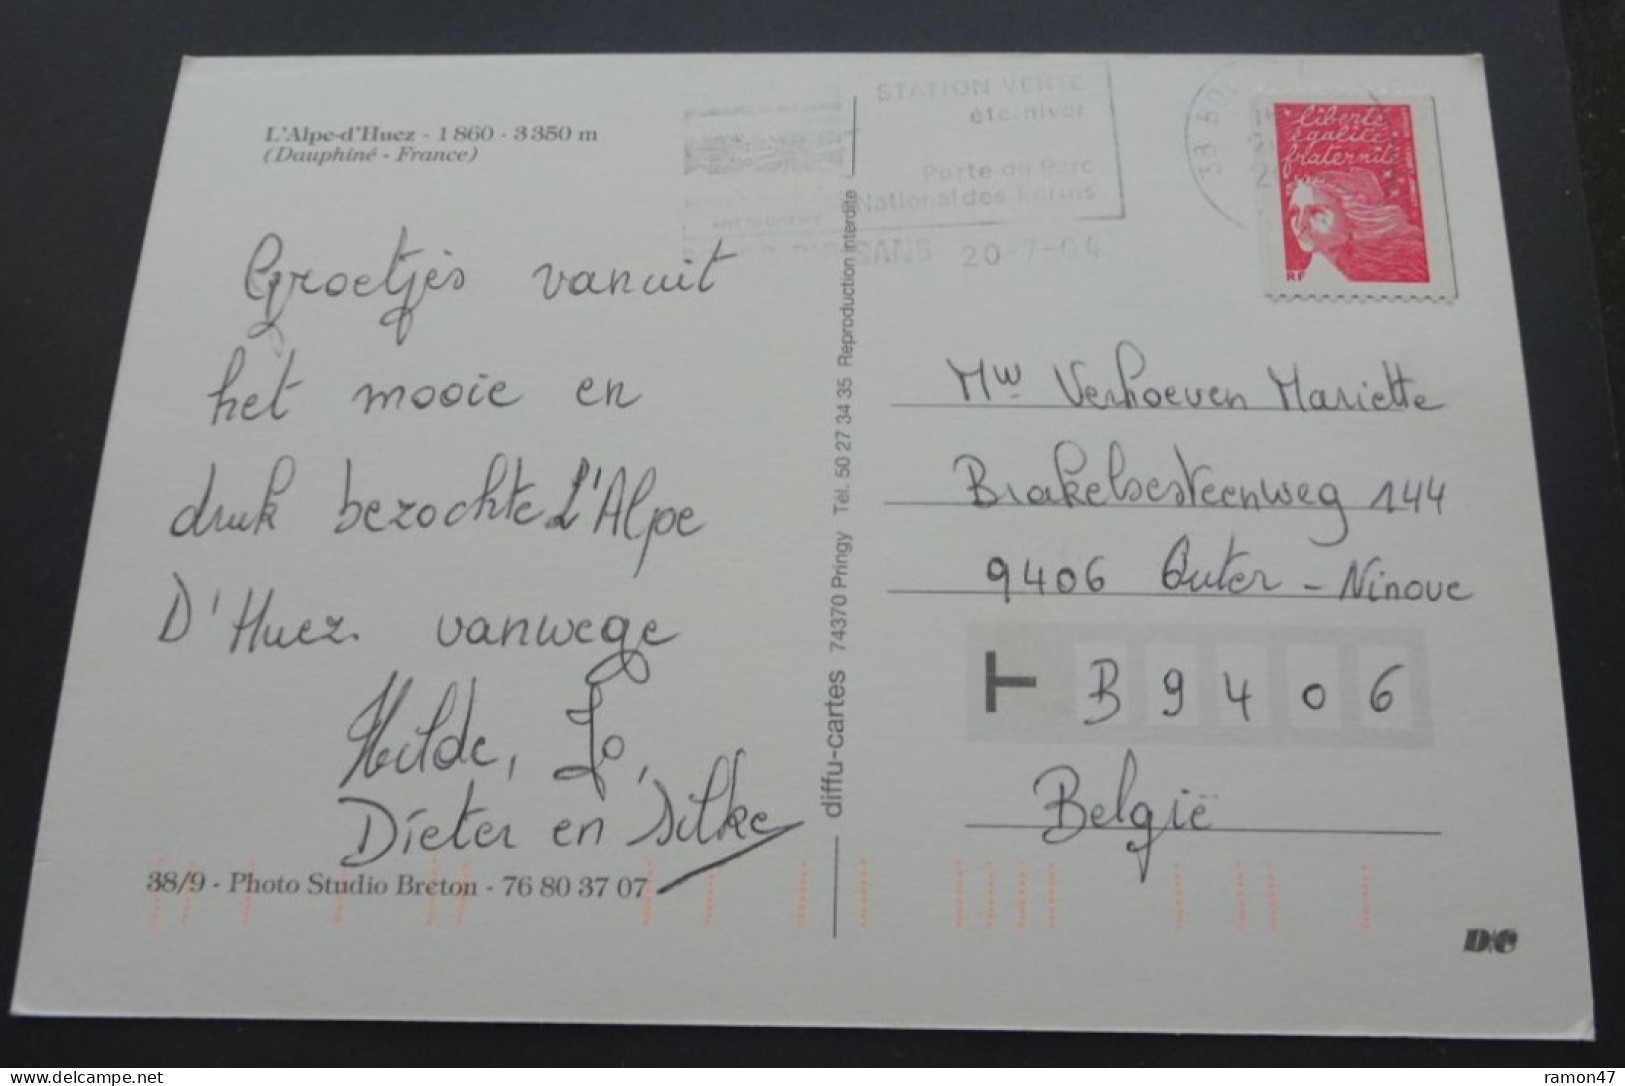 L'Alpe-d'Huez - 1860 - 3350 m
(Dauphiné - France)
Groetjes vanuit
het mooie en
druk bezochte L'Alpe
D'Huez vanwege
Hilde, Jo,
Dieter en Silke
38/9 - Photo Studio Breton - 76 80 37 07
diffu-cartes 74370 Pringy Tél. 50 27 34 35 Reproduction interdite
STATION VERTE
été.hiver
Porte du Parc
National des Ecrins
20-7-04
liberté
égalité
fraternité
RF
Mw Verhoeven Mariette
Brakelsesteenweg 144
9406 Outer - Ninove
T B 9 4 0 6
België
D/C
ramon47